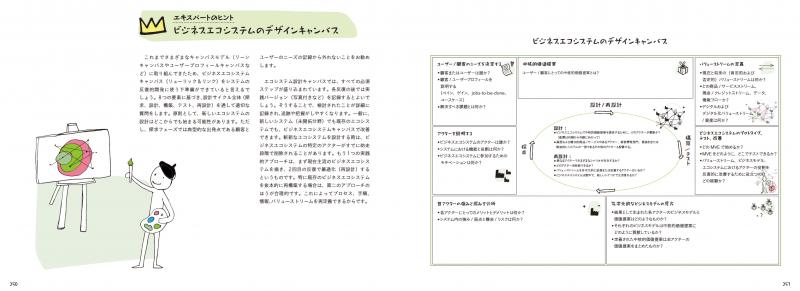 エキスパートのヒント
ビジネスエコシステムのデザインキャンバス
これまでさまざまなキャンバスモデル(リーン
キャンバスやユーザープロフィールキャンバスな
ど)に取り組んできたため、ビジネスエコシステム
キャンバス(リューリック&リンク)をシステムの
反復的開発に使う準備ができていると言えるで
しょう。8つの要素に基づき、設計サイクル全体(探
求、設計、構築、テスト、再設計)を通して適切な
質問をします。原則として、新しいエコシステムの
設計はどこからでも始まる可能性があります。ただ
し、探求フェーズでは典型的な出発点である顧客と
ユーザーのニーズの記録から外れないことをお勧め
します。
エコシステム設計キャンバスでは、すべての必須
ステップが盛り込まれています。各反復の後では実
践バージョン(写真付きなど)を記録するとよいで
しょう。そうすることで、検討されたことが詳細に
記録され、追跡や把握がしやすくなります。一般に、
新しいシステム(未開拓分野)でも既存のエコシス
テムでも、ビジネスエコシステムキャンバスで改善
できます。斬新なエコシステムを設計する際は、ビ
ジネスエコシステムの特定のアクターがすでに初期
段階で削除されることがあります。もう1つの実践
的アプローチは、まず現在主流のビジネスエコシス
テムを描き、2回目の反復で最適化(再設計)する
というものです。特に既存のビジネスエコシステム
を抜本的に再構築する場合は、第二のアプローチの
ほうが合理的です。これによってプロセス、手順、
情報、バリューストリームを再定義できるからです。
250
ビジネスエコシステムのデザインキャンバス
ユーザー/顧客のニーズを決定する
●顧客またはユーザーは誰か?
●顧客/ユーザープロフィールを
説明する
(ペイン、ゲイン、jobs-to-be-done、
ユースケース)
●解決すべき課題とは何か?
中核的価値提案
ユーザー/顧客にとっての中核的価値提案とは?
バリューストリームの定義
アクターを説明する
●ビジネスエコシステムのアクターは誰か?
●システムにおける機能と役割は何か?
●ビジネスエコシステムに参加するための
モチベーションは何か?
設計/再設計
設計:
再設計:
探求
構築/テスト
●どのMVEで始めるか?
●MVEをどのように、どこでテストできるか?
●バリューストリーム、ビジネスモデル、
エコシステムにおけるアクターの役割を
反復的に改善するために役に立つのは
どの経験か?
各アクターの強みと弱みを分析
●各アクターにとってのメリットとデメリットは何か?
●システム内の強み/弱点と機会/リスクは何か?
●結果として生まれた各アクターのビジネスモデルと
価値提案はどのようなものか?
●それぞれのビジネスモデルは中核的価値提案に
どのように貢献しているか?
●定義された中核的価値提案は全アクターの
価値提案をまとめたものか?
251